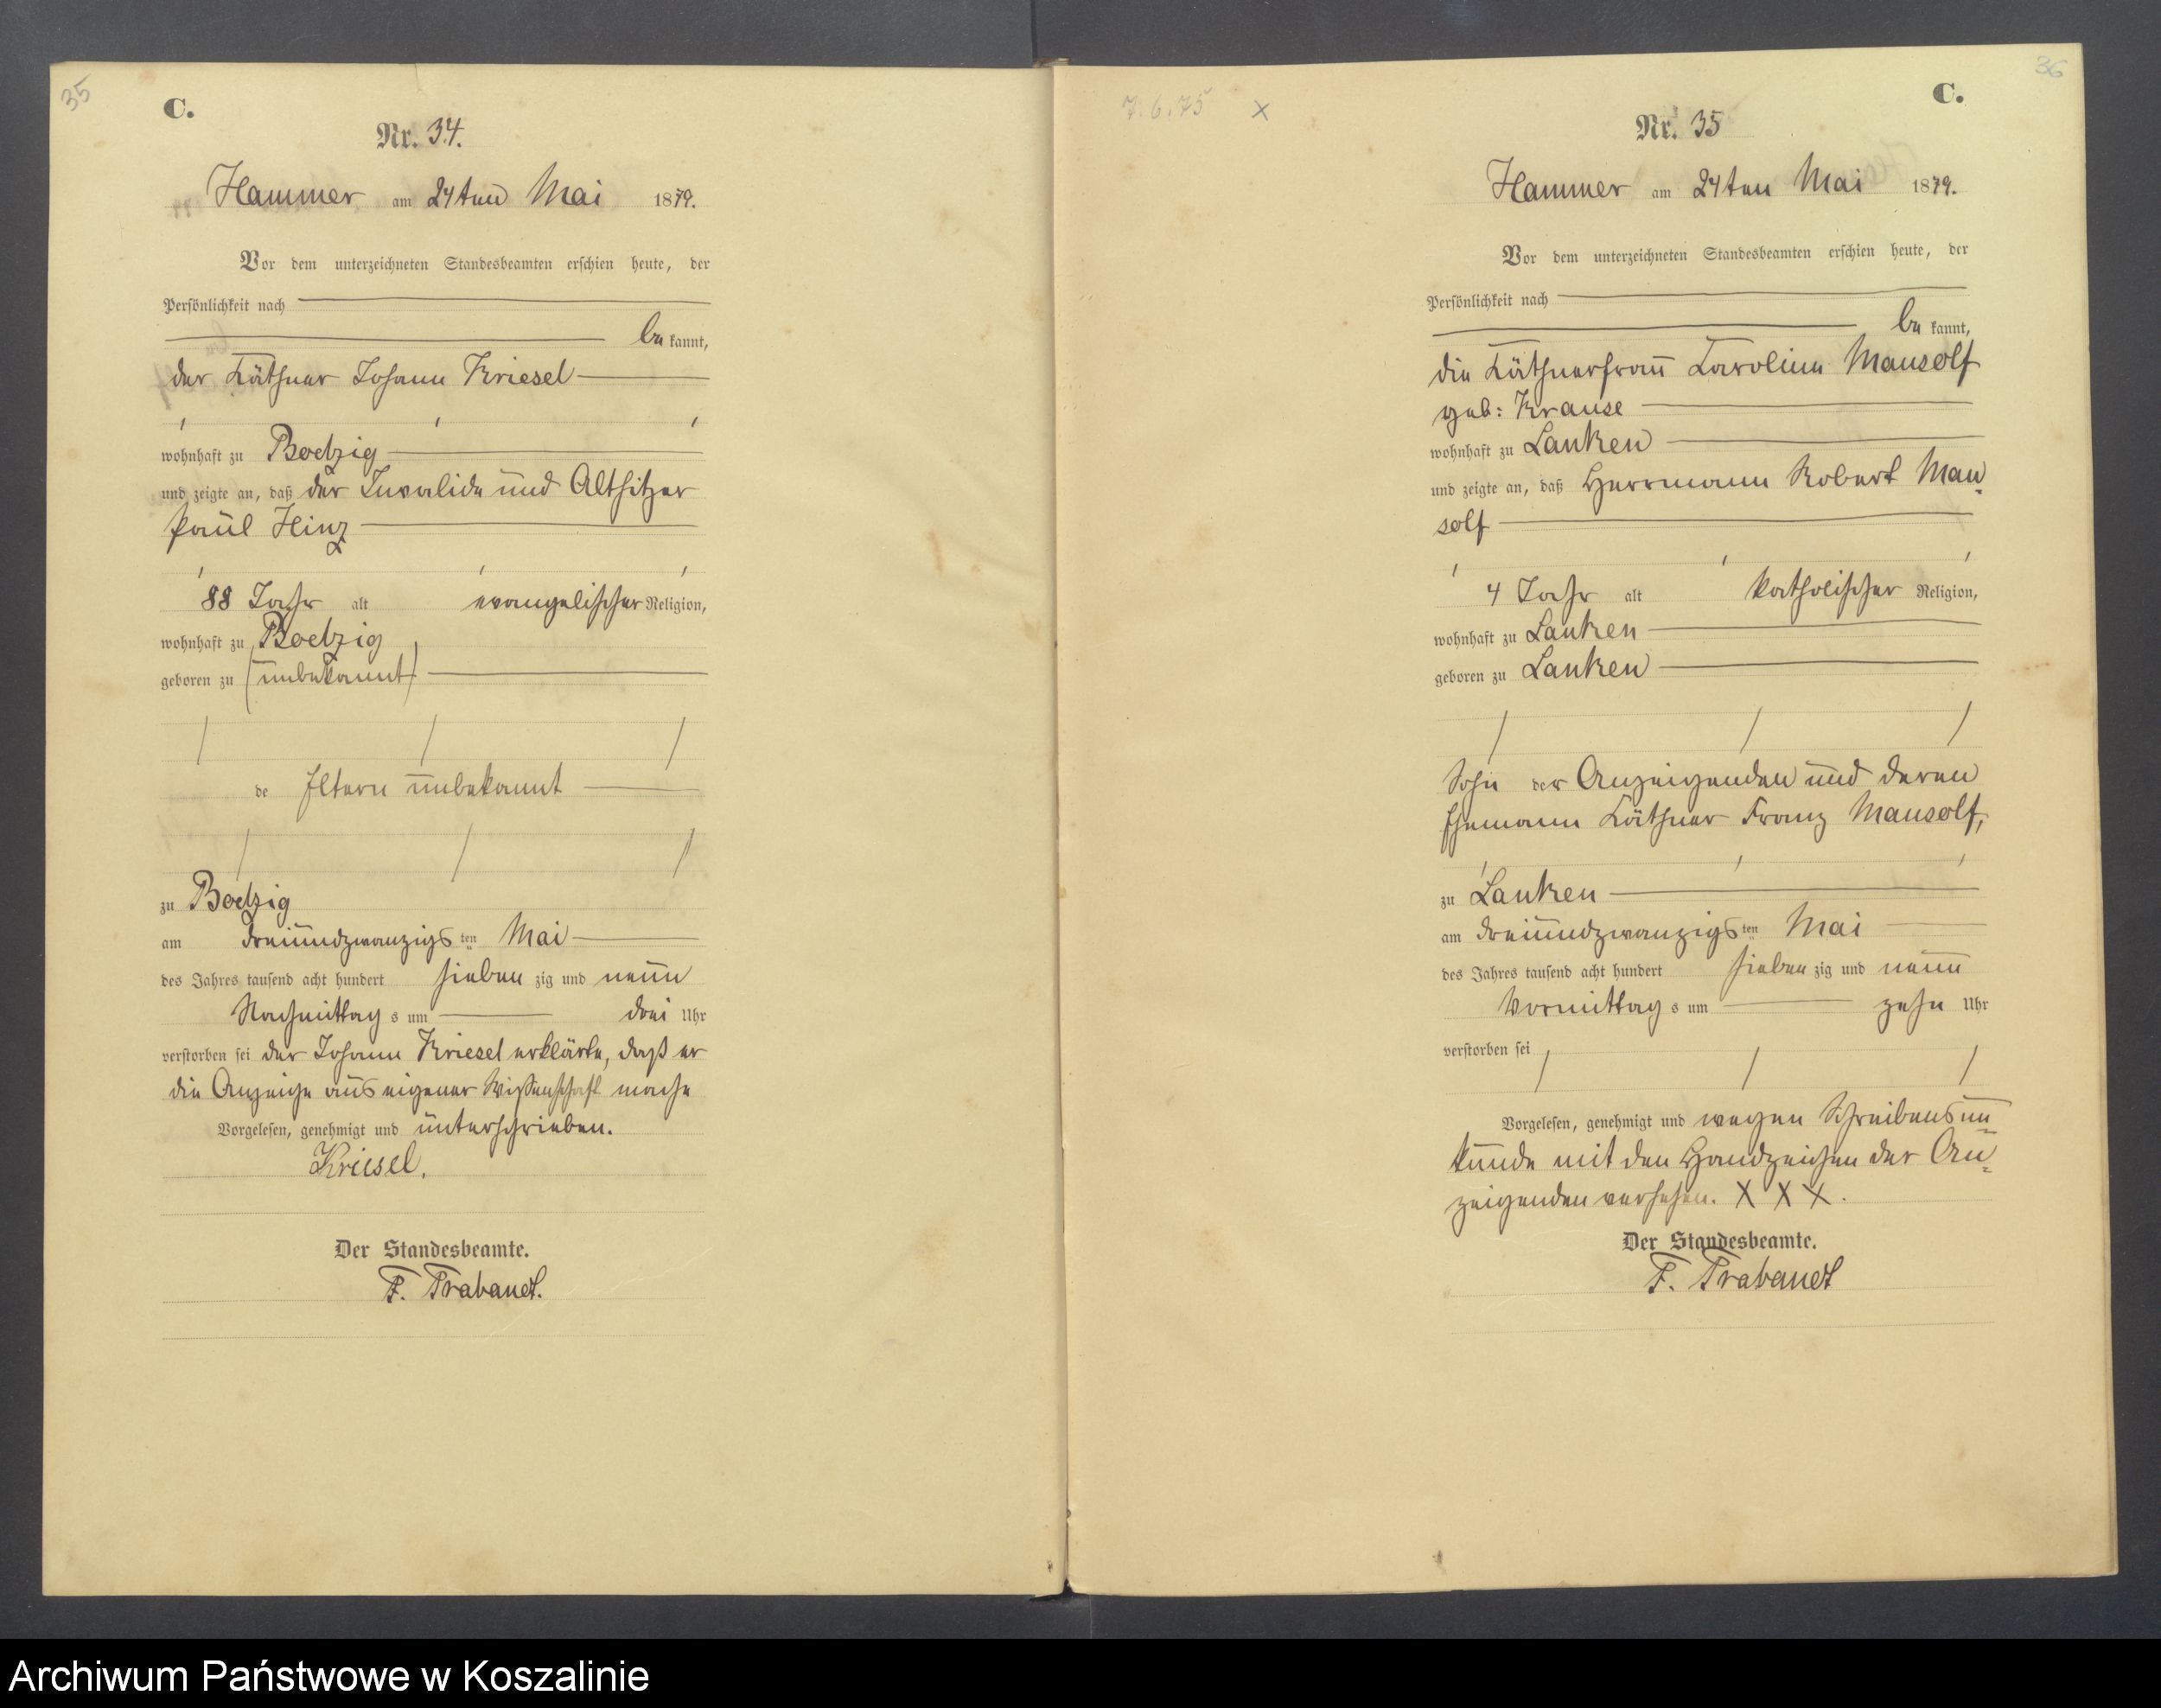 35
C.
Nr. 34.
Hammer am 24ten Mai 1879.
Vor dem unterzeichneten Standesbeamten erschien heute, der
Persönlichkeit nach
be kannt,
der Käthner Johann Kriesel
wohnhaft zu Boetzig
und zeigte an, daß der Invalide und Altsitzer
Paul Hinz
88 Jahr alt evangelischer Religion,
wohnhaft zu Boetzig
geboren zu (unbekannt)
de Eltern unbekannt
zu Boetzig
am dreiundzwanzigs ten Mai
des Jahres tausend acht hundert sieben zig und neun
Nachmittag s um drei Uhr
verstorben sei der Johann Kriesel erklärte, daß er
die Anzeige aus eigener Wissenschaft mache
Vorgelesen, genehmigt und unterschrieben.
Kriesel.
Der Standesbeamte.
F. Trabandt.
7.6.75 x
36
C.
Nr. 35
Hammer am 24ten Mai 1879.
Vor dem unterzeichneten Standesbeamten erschien heute, der
Persönlichkeit nach
be kannt,
die Käthnerfrau Caroline Mansolf
geb: Krause
wohnhaft zu Lanken
und zeigte an, daß Herrmann Robert Man
solf
4 Jahr alt katholischer Religion,
wohnhaft zu Lanken
geboren zu Lanken
Sohn der Anzeigenden und deren
Ehemann Käthner Franz Mansolf,
zu Lanken
am dreiundzwanzigs ten Mai
des Jahres tausend acht hundert sieben zig und neun
Vormittag s um zehn Uhr
verstorben sei
Vorgelesen, genehmigt und wegen Schreibensun=
kunde mit den Handzeichen der An=
zeigenden versehen. X X X.
Der Standesbeamte.
F. Trabandt
Archiwum Państwowe w Koszalinie